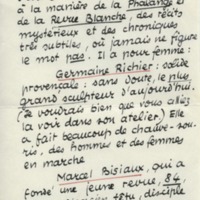 à la manière de la Phalange et
de la Revue Blanche, des récits
mystérieux et des chroniques
très subtiles, où jamais ne figure
le mot pas. Il a pour femme :
Germaine Richier : solide
provençale : sans doute, le plus
grand sculpteur d'aujourd'hui.
(Je voudrais bien que vous alliez
la voir dans son atelier) Elle
a fait beaucoup de chauve-sou-
ris, des hommes et des femmes
en marche
Marcel Bisiaux, qui a
fondé une jeune revue, 84,
têtu, disciple